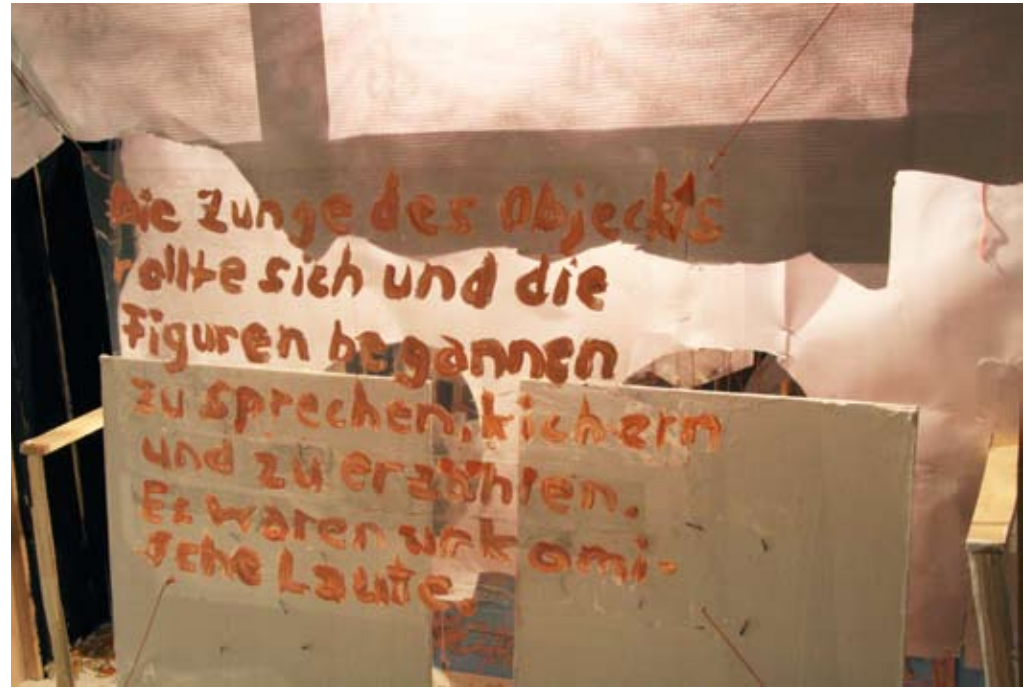 Die Zunge des Objeckts
rollte sich und die
Figuren begannen
zu sprechen, kichern
und zu erzählen.
Es waren urkomi-
sche Laute.